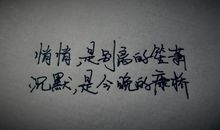 悄悄,是别离的笙箫
沉默,是今晚的康桥